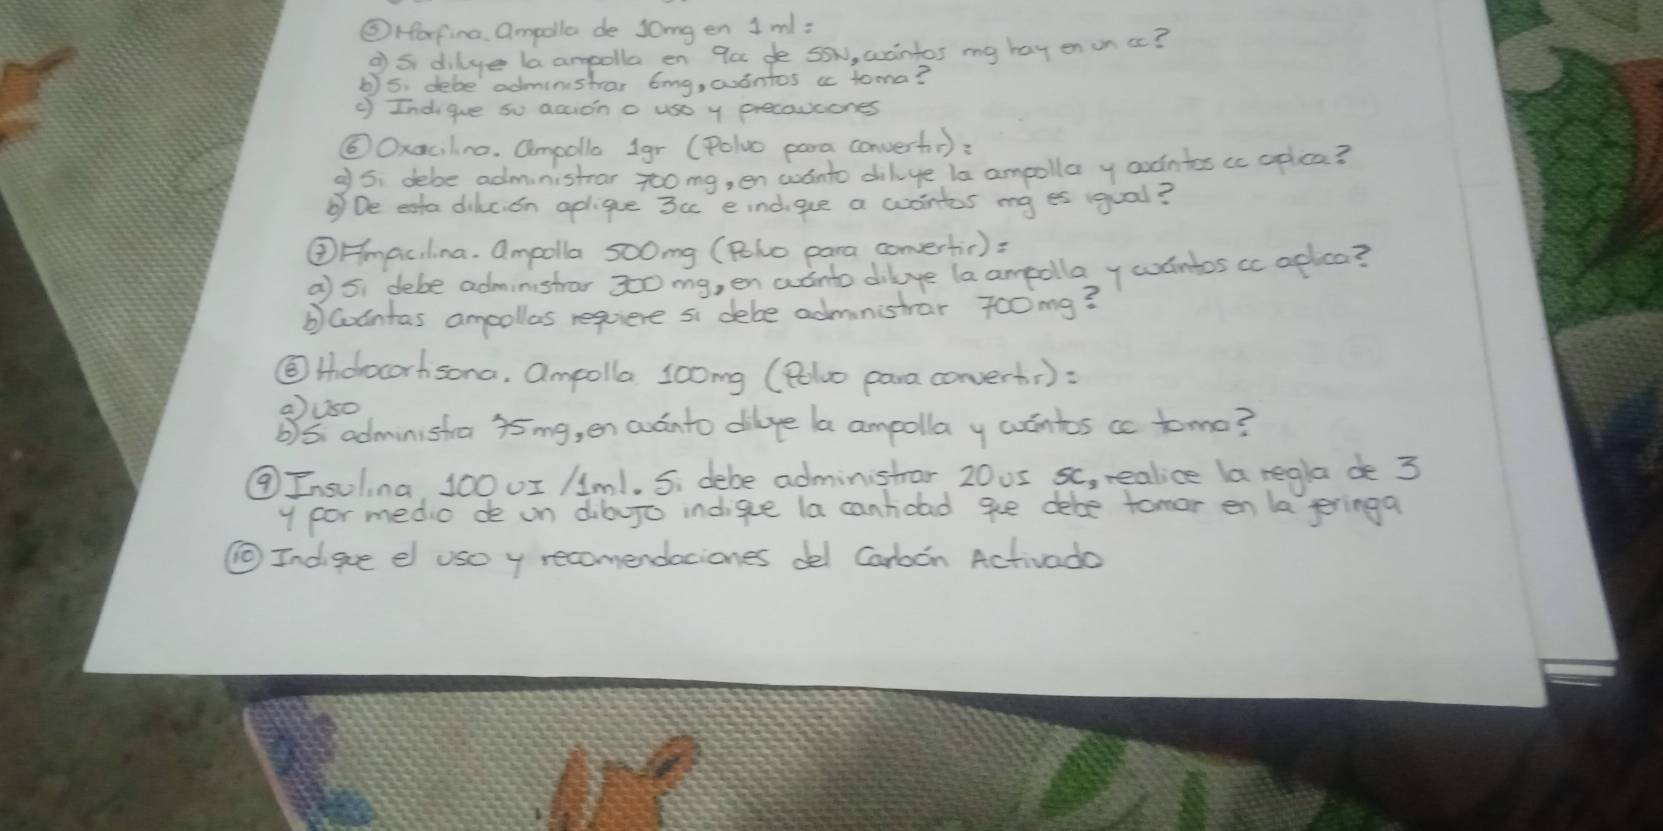 ⑤ Morfina. Ampolla de 10mg en 1 ml:
a) Si dilye la ampolla en 9cc de SSN, cuántos mg hay en un cc?
b) Si debe administrar 6mg, cuántos cc toma?
c) Indique su acción o uso y precauciones
⑥ Oxacilina. Ampolla 1gr (Polvo para convertir):
a) Si debe administrar 700 mg, en cuánto diluye la ampolla y cuántos cc aplica?
b) De esta dilución aplique 3cc e indique a cuántos mg es igual?
⑦ Ampicilina. Ampolla 500mg (Polvo para convertir):
a) Si debe administrar 300 mg, en cuánto diluye la ampolla y cuántos cc aplica?
b) Cuántas ampollas requiere si debe administrar 700mg?
⑧ Hidrocortisona. Ampolla 100mg (Polvo para convertir):
a) Uso
b) Si administra 75mg, en cuánto diluye la ampolla y cuántos cc toma?
⑨ Insulina 100 UI /1ml. Si debe administrar 20 UI SC, realice la regla de 3
y por medio de un dibujo indique la cantidad que debe tomar en la jeringa
⑩ Indique el uso y recomendaciones del Carbón Activado